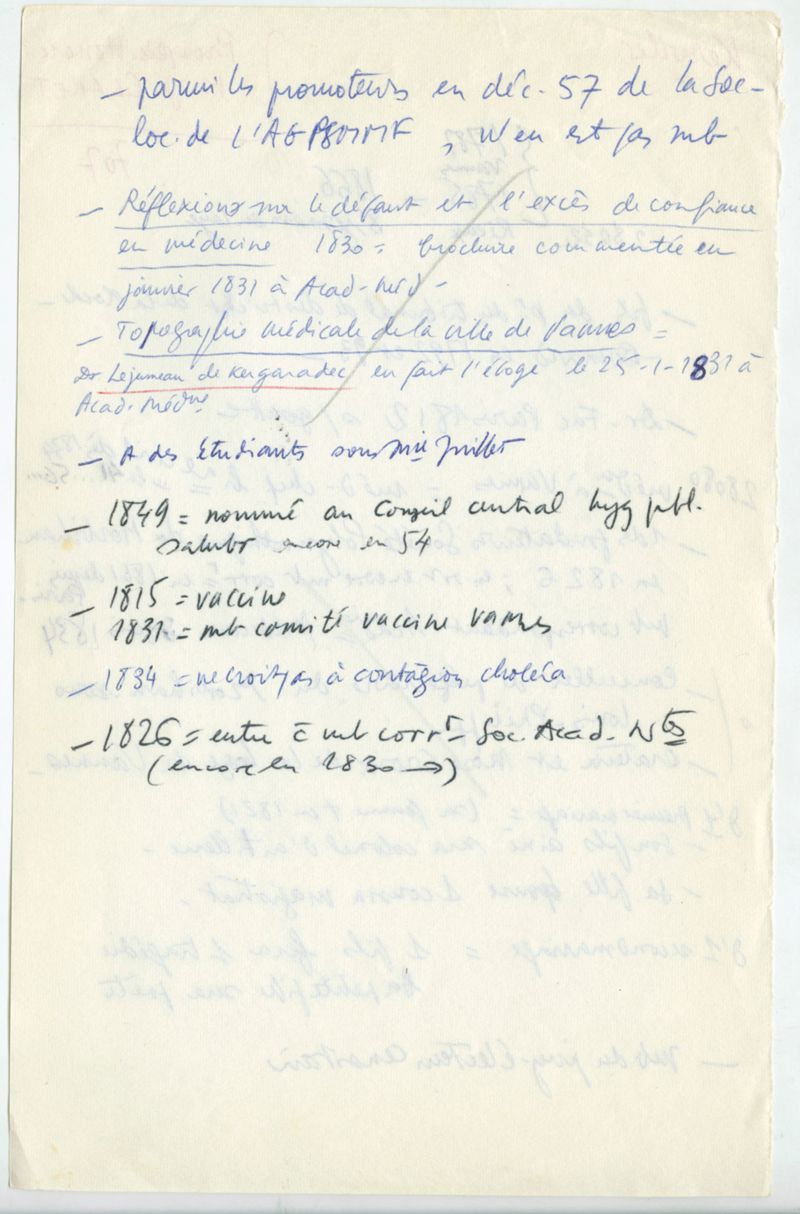 - parmi les promoteurs en déc. 57 de la Soc-
loc. de L'AGPSDIMF, N'en est pas mb
- Réflexions sur le défaut et l'excès de confiance
en médecine 1830 = brochure commentée en
janvier 1831 à Acad-Méd-
- Topographie médicale de la ville de Vannes =
Dr Lejumeau de Kergaradec en fait l'éloge le 25-1-1831 à
Acad. Médne
- A des Etudiants sous Mie Juillet
- 1849 = nommé au Conseil central hyg publ.
salubr encore en 54
- 1815 = vaccine
1831 = mb comité vaccine Vannes
- 1834 = ne croit pas à contagion choléra
- 1826 = entre c mb corrt Soc. Acad. Ntes
(encore en 1830 →)